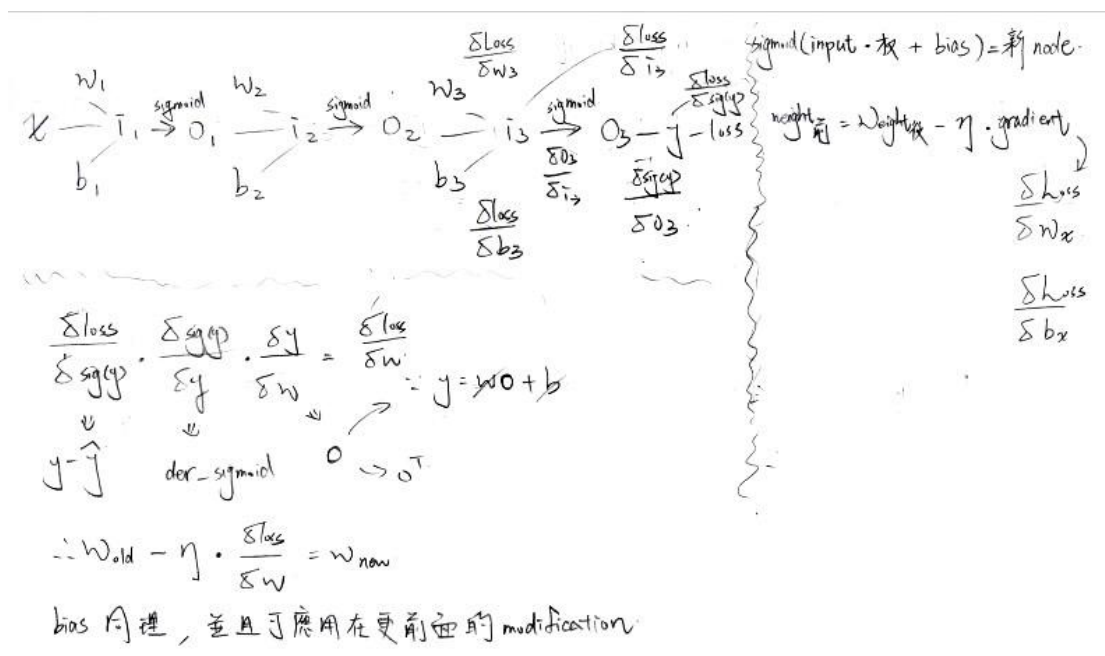 δLoss/δw3
δloss/δi3
w1
w2
w3
δloss/δsig(y)
x — i1 → sigmoid O1 — i2 → sigmoid O2 — i3 → sigmoid O3 — y — loss
b1
b2
b3
δO3/δi3
δsig(y)/δO3
δloss/δb3
sigmoid(input · 权 + bias) = 新 node.
weight前 = Weight後 - η · gradient
δLoss/δwx
δLoss/δbx
δloss/δsig(y) · δsig(y)/δy · δy/δw = δloss/δw
∵ y = wo + b
y-ŷ
der_sigmoid
o → oᵀ
∴ Wold - η · δloss/δw = wnew
bias 同理, 並且可應用在更前面的 modification